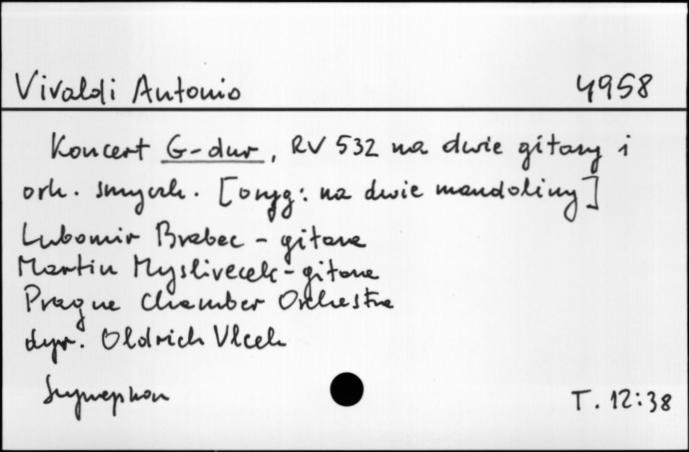 Vivaldi Antonio 4958
Koncert G-dur, RV 532 na dwie gitary i
ork. smyczk. [oryg: na dwie mandoliny]
Lubomir Brabec - gitara
Martin Myslivecek - gitara
Prague Chamber Orchestra
dyr. Oldrich Vlcek
Supraphon T. 12:38